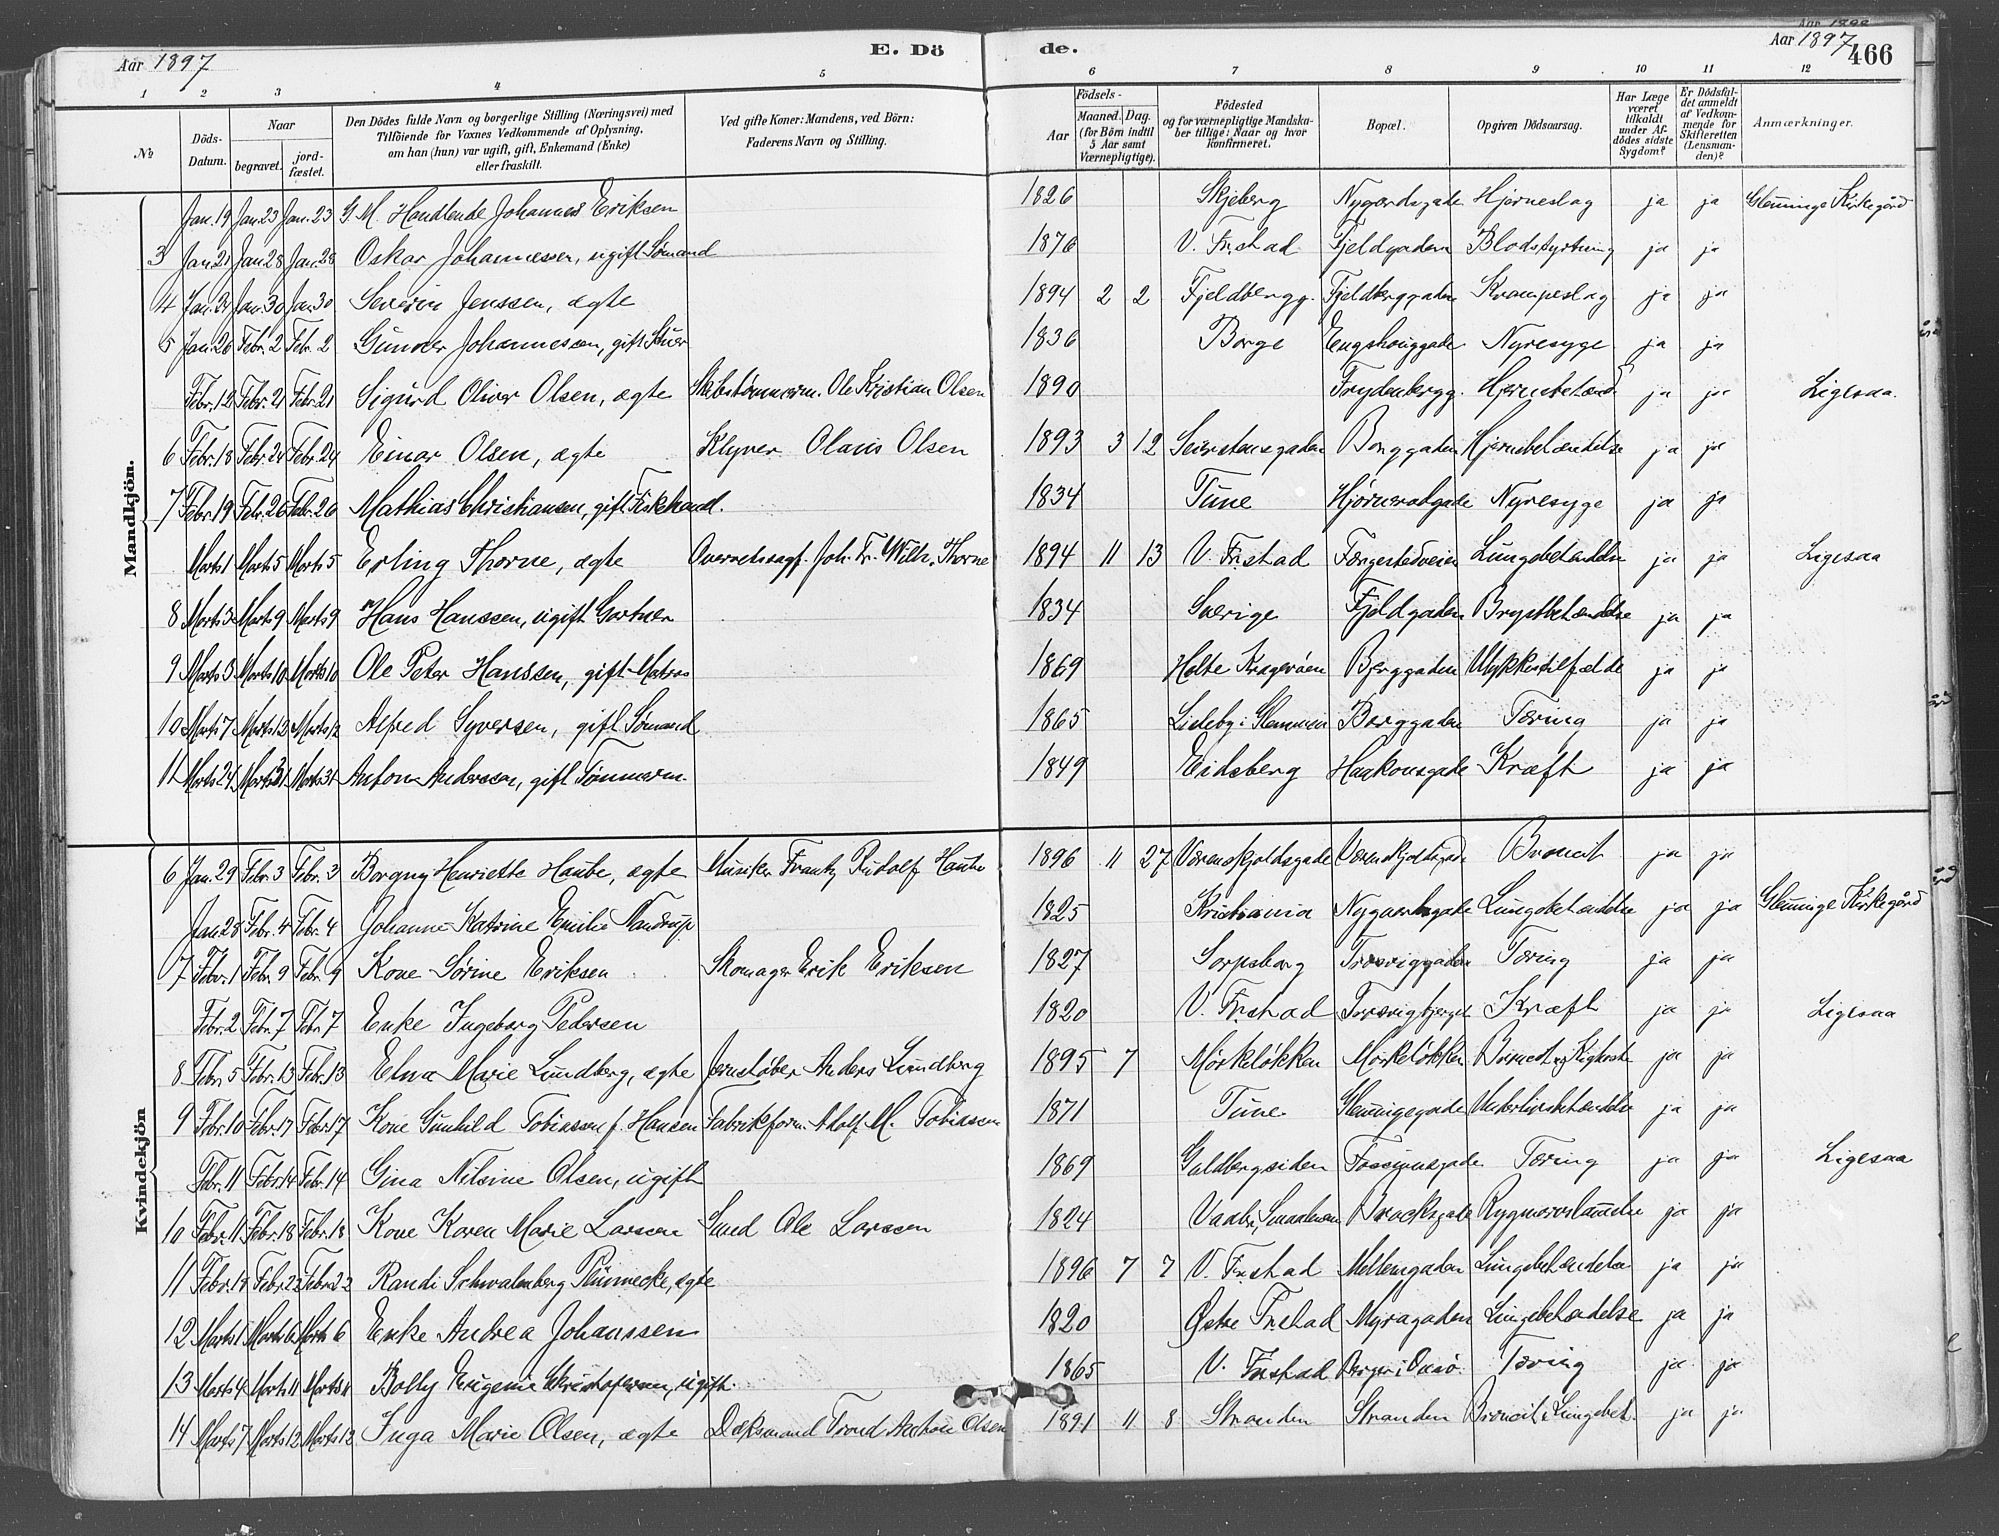 Aar 1897
E. Dö
de.
Aar 1897
466
1 2 3 4 5 6 7 8 9 10 11 12
№
Döds-Datum.
Naar begravet. jordfæstet.
Den Dödes fulde Navn og borgerlige Stilling (Næringsvei) med Tilföiende for Voxnes Vedkommende af Oplysning, om han (hun) var ugift, gift, Enkemand (Enke) eller fraskilt.
Ved gifte Koner: Mandens, ved Börn: Faderens Navn og Stilling.
Födsels- Aar Maaned. Dag. (for Börn indtil 5 Aar samt Værnepligtige).
Födested og for værnepligtige Mandskaber tillige: Naar og hvor konfirmeret.
Bopæl.
Opgiven Dödsaarsag.
Har Læge været tilkaldt under Afdödes sidste Sygdom?
Er Dödsfaldet anmeldt af Vedkommende for Skifteretten (Lensmanden)?
Anmærkninger.
Mandkjön.
Jan. 19 Jan. 23 Jan. 23 G. M. Handlende Johannes Eriksen 1826 Skjeberg Nygaardsgade Hjerneslag ja ja Glemminge Kirkegård
3 Jan. 21 Jan. 28 Jan. 28 Oskar Johannessen, ugift Sømand 1876 V. Fr.stad Fjeldgaden Blodstyrtning ja ja
4 Jan. 24 Jan. 30 Jan. 30 Severin Jenssen, ægte 1894 2 2 Fjeldbergg. Fjeldberggaden Krampeslag ja ja
5 Jan. 26 Febr. 2 Febr. 2 Gunner Johannessen, gift Stuer 1836 Borge Enghouggade Nyresyge ja ja
Febr. 12 Febr. 21 Febr. 21 Sigurd Oliver Olsen, ægte Skibstømmerm. Ole Kristian Olsen 1890 Frydenbergg. Hjernebetænd. ja ja Ligesaa.
6 Febr. 18 Febr. 24 Febr. 24 Einar Olsen, ægte Klyver Olaus Olsen 1893 3 12 Borggaden Hjernebetændelse ja ja
7 Febr. 19 Febr. 26 Febr. 26 Mathias Christiansen, gift Fiskehandl. 1834 Tune Nyresyge ja ja
Marts 1 Marts 5 Marts 5 Erling Thorne, ægte Overretssagf. Joh. Fr. Wilh. Thorne 1894 11 13 V. Fr.stad Færgestedveien Lungebetændelse ja ja Ligesaa
8 Marts 3 Marts 9 Marts 9 Hans Hanssen, ugift Gartner 1834 Sverige Fjeldgaden Brystbetændelse ja ja
9 Marts 3 Marts 10 Marts 10 Ole Peter Hanssen, gift Matros 1869 Holte Kragerøen Berggaden Ulykkestilfælde ja ja
10 Marts 7 Marts 12 Marts 12 Alfred Syversen, gift Sømand 1865 Lisleby i Glemmen Borggaden Tæring ja ja
11 Marts 24 Marts 31 Marts 31 Anton Anderssen, gift Tømmerm. 1849 Eidsberg Haakonsgade Kræft ja ja
Kvindekjön
6 Jan. 29 Febr. 3 Febr. 3 Borgny Henriette Haube, ægte Musiker Frantz Rudolf Haube 1896 11 27 Værenskjoldsgade Værenskjoldsgade Bronchit ja ja
Jan. 28 Febr. 4 Febr. 4 Johanne Katrine Emilie Nandrup 1825 Kristiania Nygaardsgade Lungebetændelse ja ja Glemminge Kirkegård
7 Febr. 1 Febr. 9 Febr. 9 Kone Sørine Eriksen Skomager Erik Eriksen 1827 Sarpsborg Trosviggaden Tæring ja ja
Febr. 2 Febr. 7 Febr. 7 Enke Ingeborg Pedersen 1820 V. Fr.stad Trosvigbjerget Kræft ja ja Ligesaa
8 Febr. 5 Febr. 13 Febr. 13 Elna Marie Lundberg, ægte Jernstøber Anders Lundberg 1895 7 Mørkeløkken Mørkeløkken Bronchit og Kighoste ja ja
9 Febr. 10 Febr. 17 Febr. 17 Kone Gunhild Tobiassen f. Hansen Fabrikform. Adolf M. Tobiassen 1871 Tune Glemmingegade Underlivsbetændelse ja ja
Febr. 11 Febr. 14 Febr. 14 Gina Nilsine Olsen, ugift 1869 Galdbergsiden Tæring ja ja Ligesaa
10 Febr. 11 Febr. 18 Febr. 18 Kone Karen Marie Larsen Smed Ole Larssen 1824 Vaaler, Smaalenene Brocksgade ja ja
11 Febr. 18 Febr. 22 Febr. 22 Randi Schwalenberg Plünnecke, ægte 1896 7 7 V. Fr.stad Mellemgaden Lungebetændelse ja ja
12 Marts 1 Marts 6 Marts 6 Enke Andrea Johanssen 1820 Østre Fr.stad Myragaden Lungebetændelse ja ja
13 Marts 4 Marts 11 Marts 11 Bolly Eugenie Christofersen, ugift. 1865 V. Fr.stad Tæring ja ja
14 Marts 7 Marts 12 Marts 12 Inga Marie Olsen, ægte Dæksmand Trond Anton Olsen 1891 11 8 Stranden Stranden Bronchit & Lungebet. ja ja